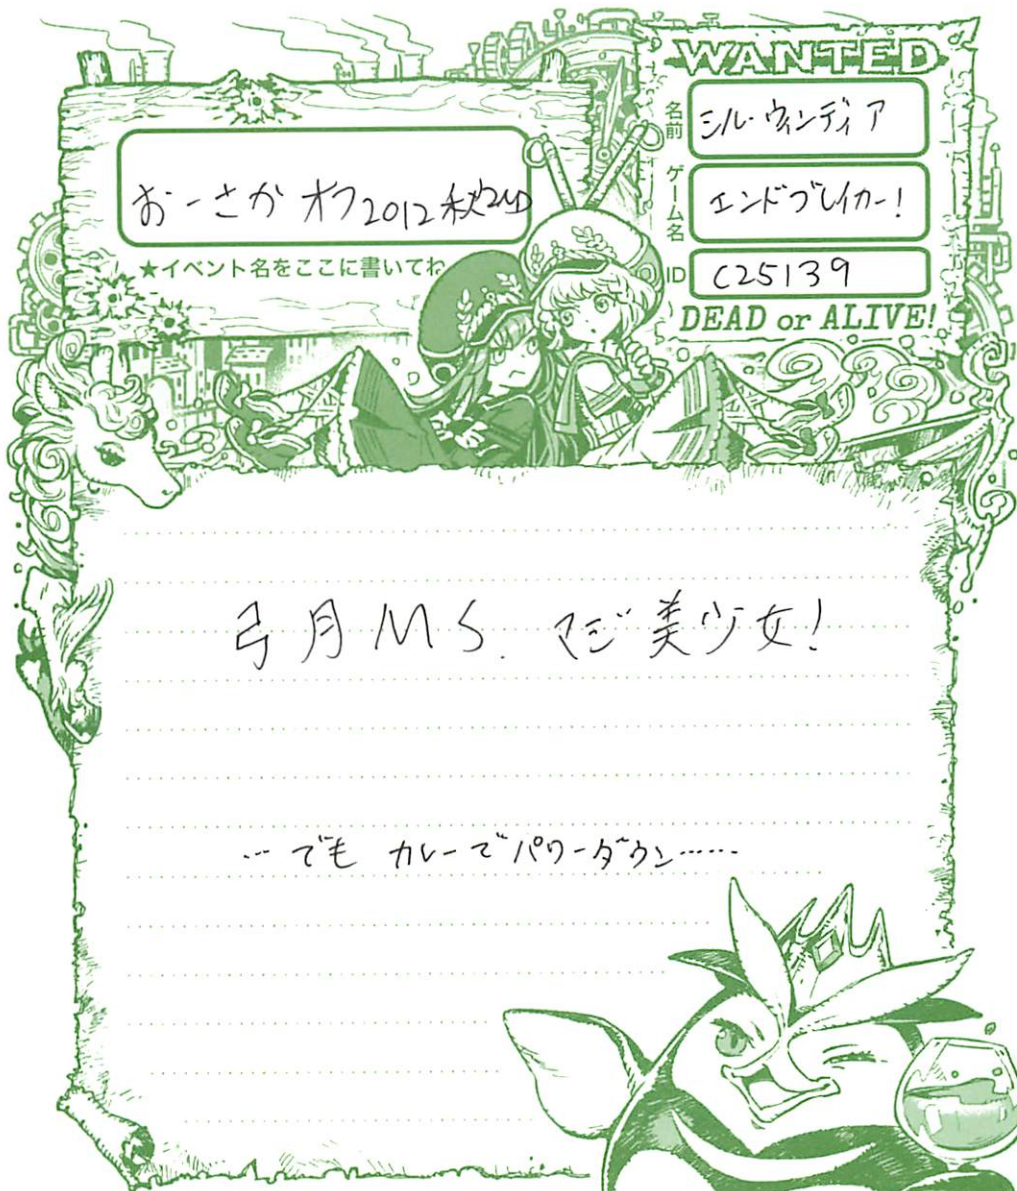 WANTED
名前
シル・ウィンディア
ゲーム名
エンドブレイカー!
ID
C25139
DEAD or ALIVE!
おーさかオフ2012秋2ND
★イベント名をここに書いてね
弓月MS. マジ美少女!
…でも カレーでパワーダウン……